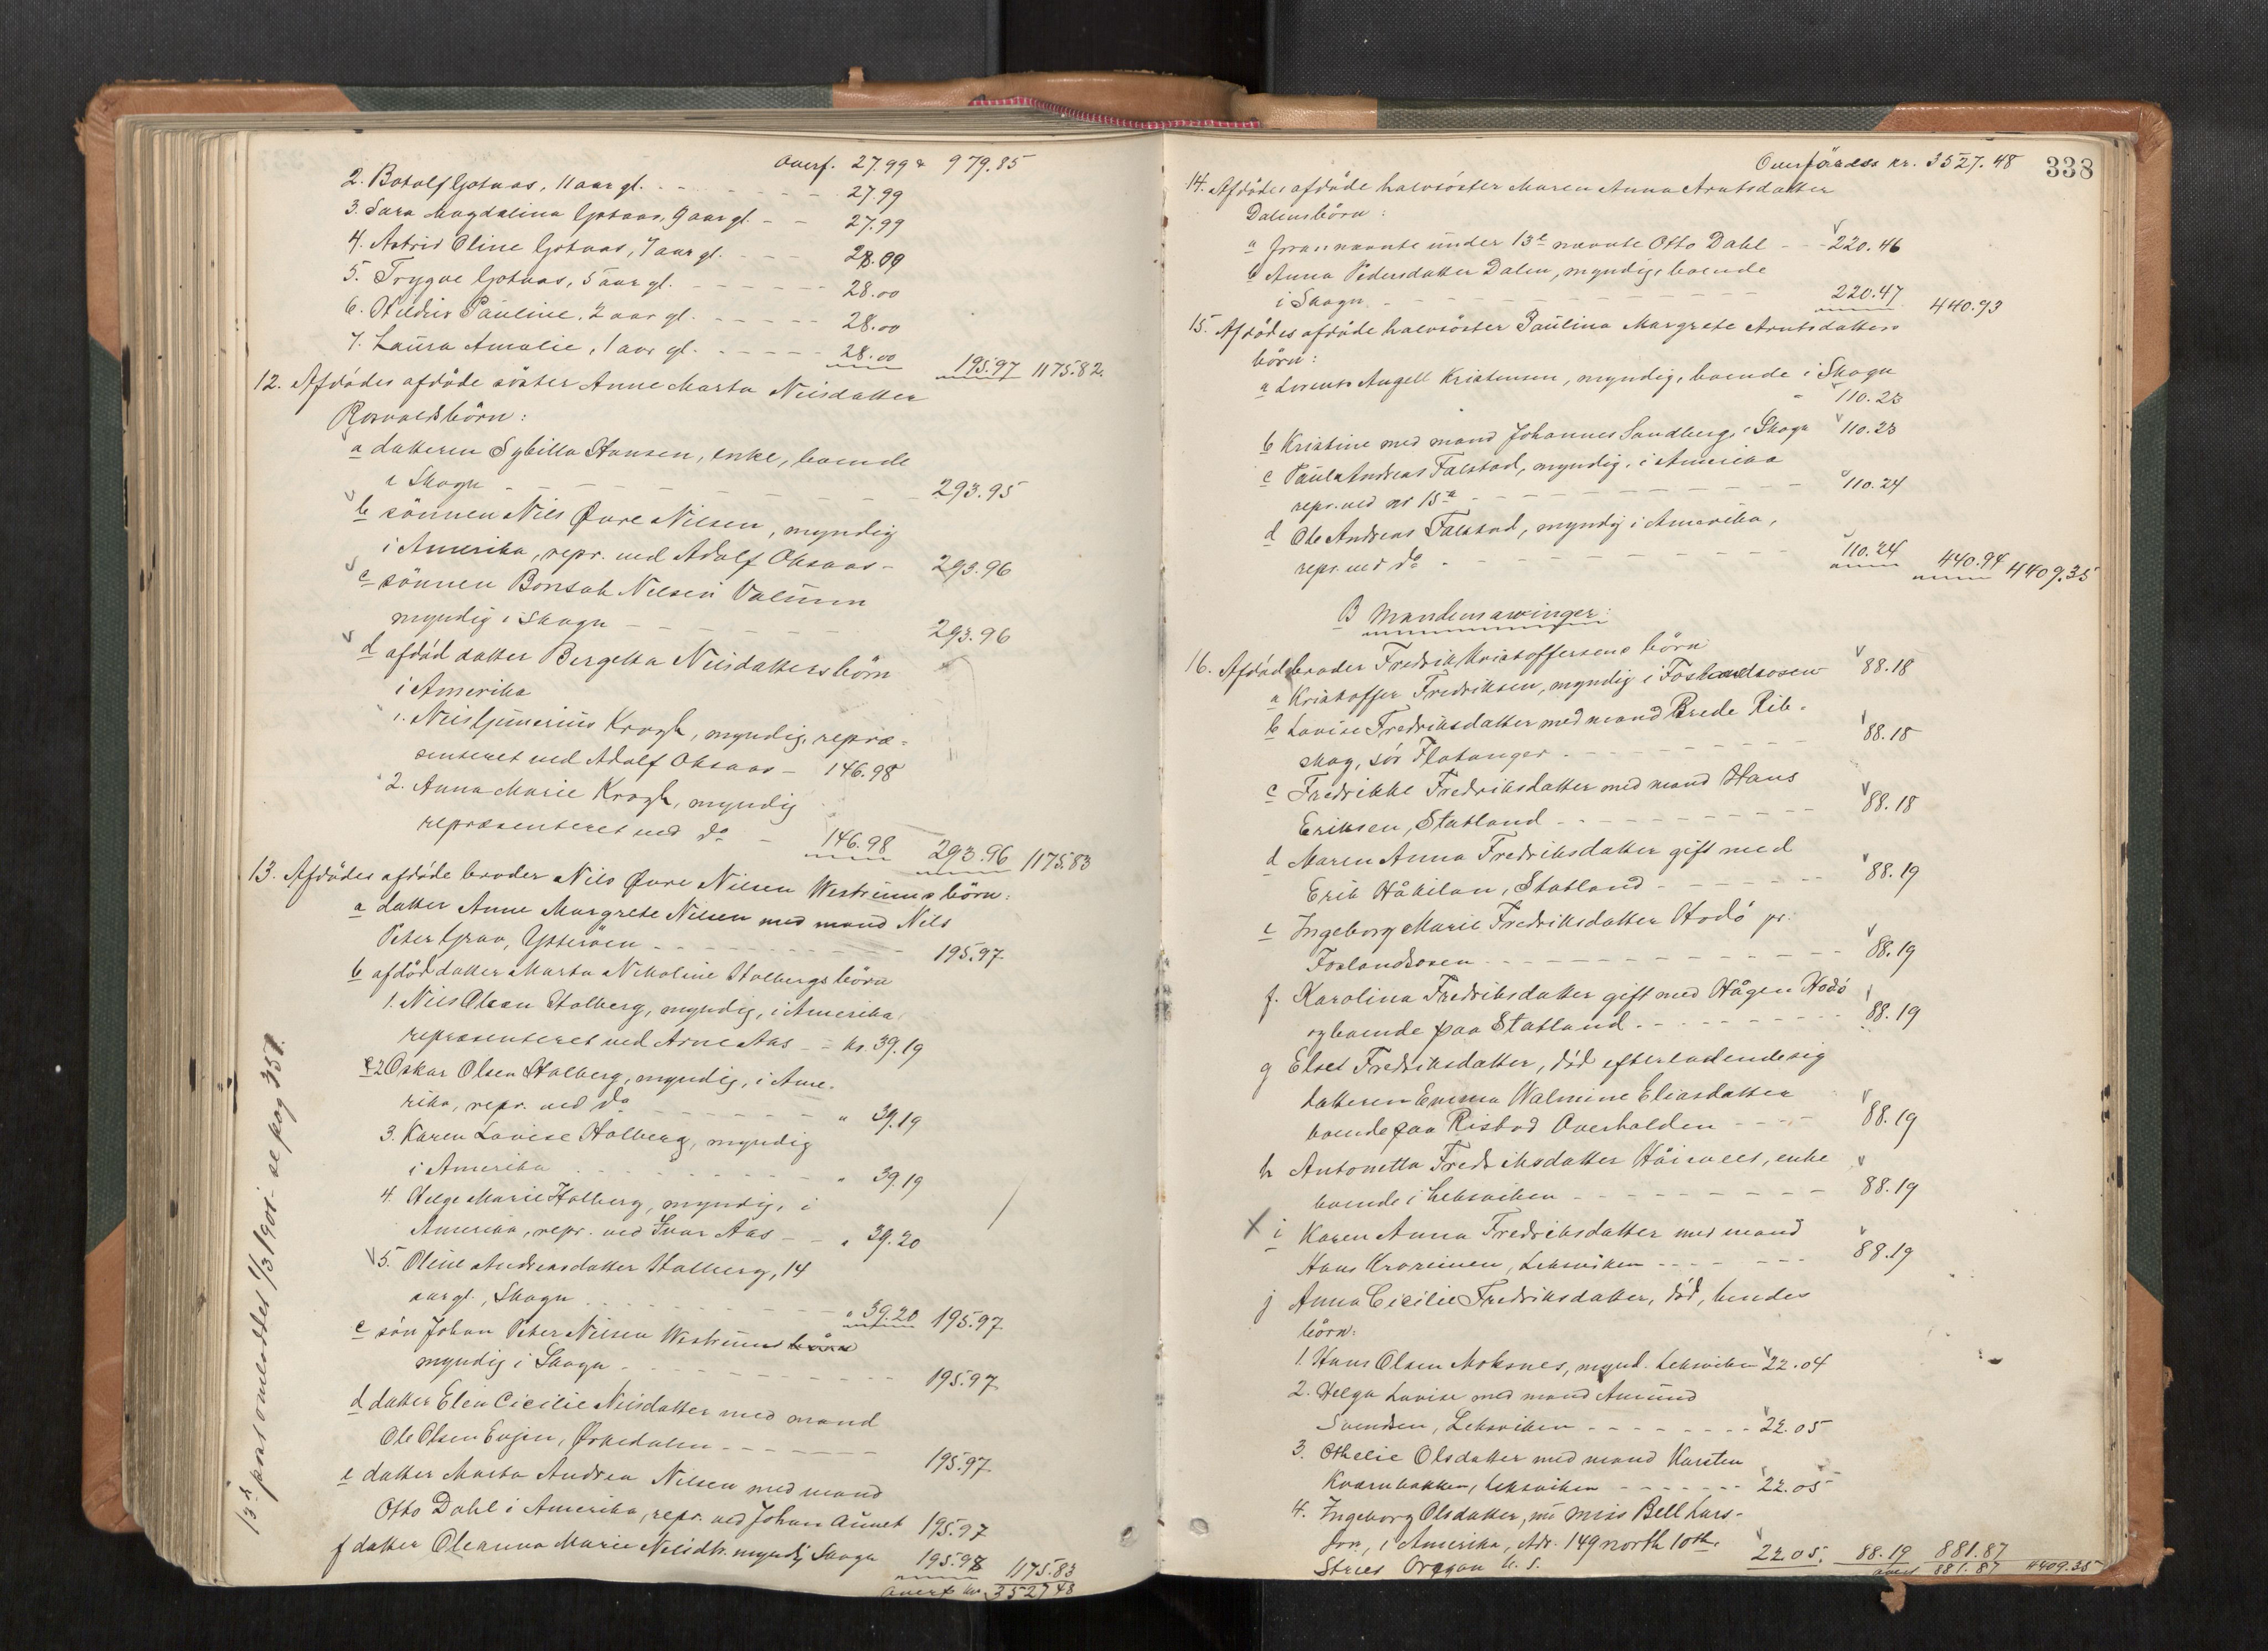 Overf. 27.99 " 979.85
2. Botolf Gotaas, 11 aar gl. 27.99
3. Sara Magdalina Gotaas, 9 aar gl. 27.99
4. Astrid Oline Gotaas, 7 aar gl. 28.00
5. Trygve Gotaas, 5 aar gl. 28.00
6. Hildur Pauline, 2 aar gl. 28.00
7. Laura Amalie, 1 aar gl. 28.00 195.97 1175.82.
12. Afdødes afdøde søster Anne Marta Nilsdatter
Rosvolds børn:
a datteren Sybilla Hansen, enke, boende
i Skogn 293.95
b sønnen Nils Øvre Nilsen, myndig
i Amerika, repr. ved Adolf Oksaas 293.96
c sønnen Bonsak Nilsen Valum
myndig i Skogn 293.96
d afdød datter Bergetta Nilsdatters børn
i Amerika
1. Nils Gunerius Krogh, myndig, repræ-
senteret ved Adolf Oksaas 146.98
2. Anna Marie Krogh, myndig
repræsenteret ved do 146.98 293.96 1175.83
13. Afdødes afdøde broder Nils Øvre Nilsen Westrums børn:
a datter Anne Margrete Nilsen med mand Nils
Peter Grav, Ytterøen 195.97
b afdød datter Marta Nikoline Stolbergs børn
1. Nils Olsen Stolberg, myndig, i Amerika,
repræsenteret ved Arne Aas kr. 39.19
2 Oskar Olsen Stolberg, myndig, i Ame-
rika, repr. ved do " 39.19
3. Karen Lovise Stolberg, myndig
i Amerika " 39.19
4. Helge Marie Stolberg, myndig, i
Amerika, repr. ved Ivar Aas " 39.20
5. Oline Andreasdatter Stolberg, 14
aar gl., Skogn " 39.20 195.97
c søn Johan Peter Nilsen Westrums børn
myndig i Skogn 195.97
d datter Elen Cicilie Nilsdatter med mand
Ole Olsen Evjen, Ørkedalen 195.97
e datter Marta Andrea Nilsen med mand
Otto Dahl i Amerika, repr. ved Johan Aunet 195.97
f datter Oleanna Marie Nilsdtr. myndig Skogn 195.98 1175.83
Overf kr. 3527.48
13 post omordtet 1/3 1905 se pag 351.
Overføres kr. 3527.48 338
14. Afdødes afdøde halvsøster Maren Anna Arntsdatter
Dalens børn:
a foran nævnte under 13e nævnte Otto Dahl 220.46
b Anna Pedersdatter Dalen, myndig, boende
i Skogn 220.47 440.93
15. Afdødes afdøde halvsøster Paulina Margrete Arntsdatters
børn:
a Lorents Angell Kristensen, myndig, boende i Skogn
" 110.23
b Kristine med mand Johannes Sandberg, Skogn 110.23
c Paul Andreas Falstad, myndig, i Amerika
repr. ved nr 15a 110.24
d Ole Andreas Falstad, myndig i Amerika,
repr. ved do 110.24 440.94 4409.35
B Mandens arvinger:
16. Afdød broder Fredrik Kristoffersens børn
a Kristoffer Fredriksen, myndig i Foslandsosen 88.18
b Lovise Fredriksdatter med mand Brede Rib-
skog, sør Flatanger 88.18
c Fredrikke Fredriksdatter med mand Hans
Eriksen, Statland 88.18
d Maren Anna Fredriksdatter gift med
Erik Håkilan, Statland 88.19
e Ingeborg Marie Fredriksdatter Hodø pr.
Foslandsosen 88.19
f. Karolina Fredriksdatter gift med Hågen Hodø
og boende paa Statland 88.19
g Elset Fredriksdatter, død efterladende sig
datteren Emma Walmine Eliasdatter
boende paa Risbod Overhalden 88.19
h Antonetta Fredriksdatter, enke
boende i Leksviken 88.19
i Karen Anna Fredriksdatter med mand
Hans, Leksviken 88.19
j Anna Cicilie Fredriksdatter, død, hendes
børn:
1. Hans Olsen Moksnes, mynd. Leksviken 22.04
2. Helga Lovise med mand Amund
Svendsen, Leksviken 22.05
3. Othelie Olsdatter med mand Karsten
Kværnbakken, Leksviken 22.05
4. Ingeborg Olsdatter, nu miss Bell Lars-
son, i Amerika, Adr. 149 north 10th.
Street Oregon U. S. 22.05. 88.19 881.87
overf 881.87 4409.35